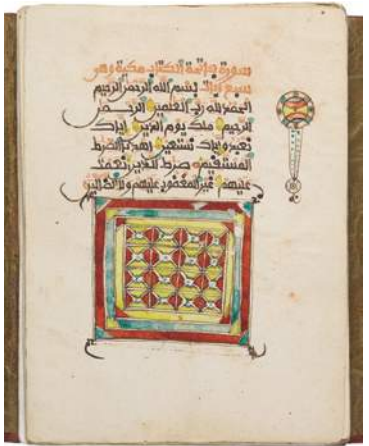 سورة فاتحة الكتاب مكية وهي
سبع ايات بسم الله الرحمن الرحيم
الحمد لله رب العلمين الرحمن
الرحيم ملك يوم الدين اياك
نعبد واياك نستعين اهدنا الصرط
المستقيم صرط الذين انعمت
عليهم غير المغضوب عليهم ولا الضالين